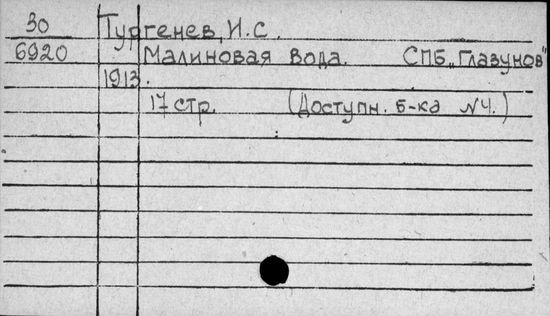 30 Тургенев, И.С.
6920 Малиновая вода. СПБ „Глазунов"
1913.
17 стр. (Доступн. б-ка №4.)